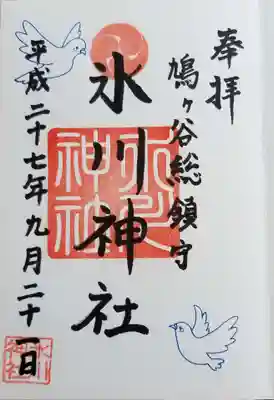 奉拝
鳩ヶ谷総鎮守
氷川神社
氷川神社
平成二十七年九月二十一日
氷川神社